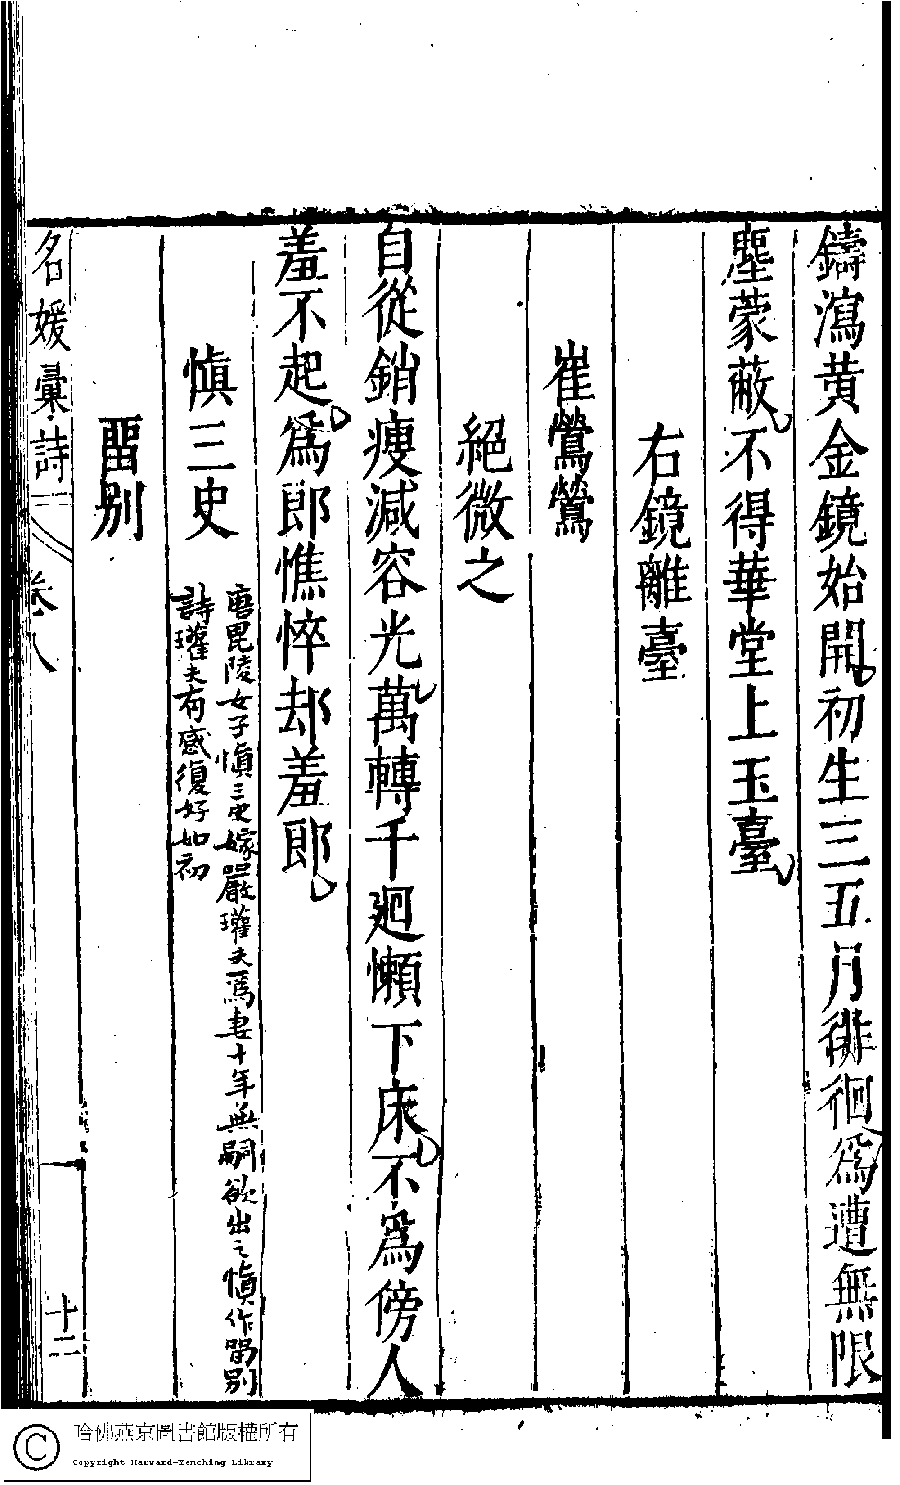 鑄瀉黃金鏡始開初生三五月徘徊爲遭無限
塵蒙蔽不得華堂上玉臺
右鏡離臺
崔鶯鶯
絕微之
自從銷瘦減容光萬轉千廻懶下床不爲傍人
羞不起爲郎憔悴却羞郎
愼三史
唐毘陵女子愼三史嫁嚴瓘夫爲妻十年無嗣欲出之愼作畱別
詩瓘夫有感復好如初
畱别
名媛彙詩
卷八
十二
哈佛燕京圖書館版權所有
Copyright Harvard-Yenching Library